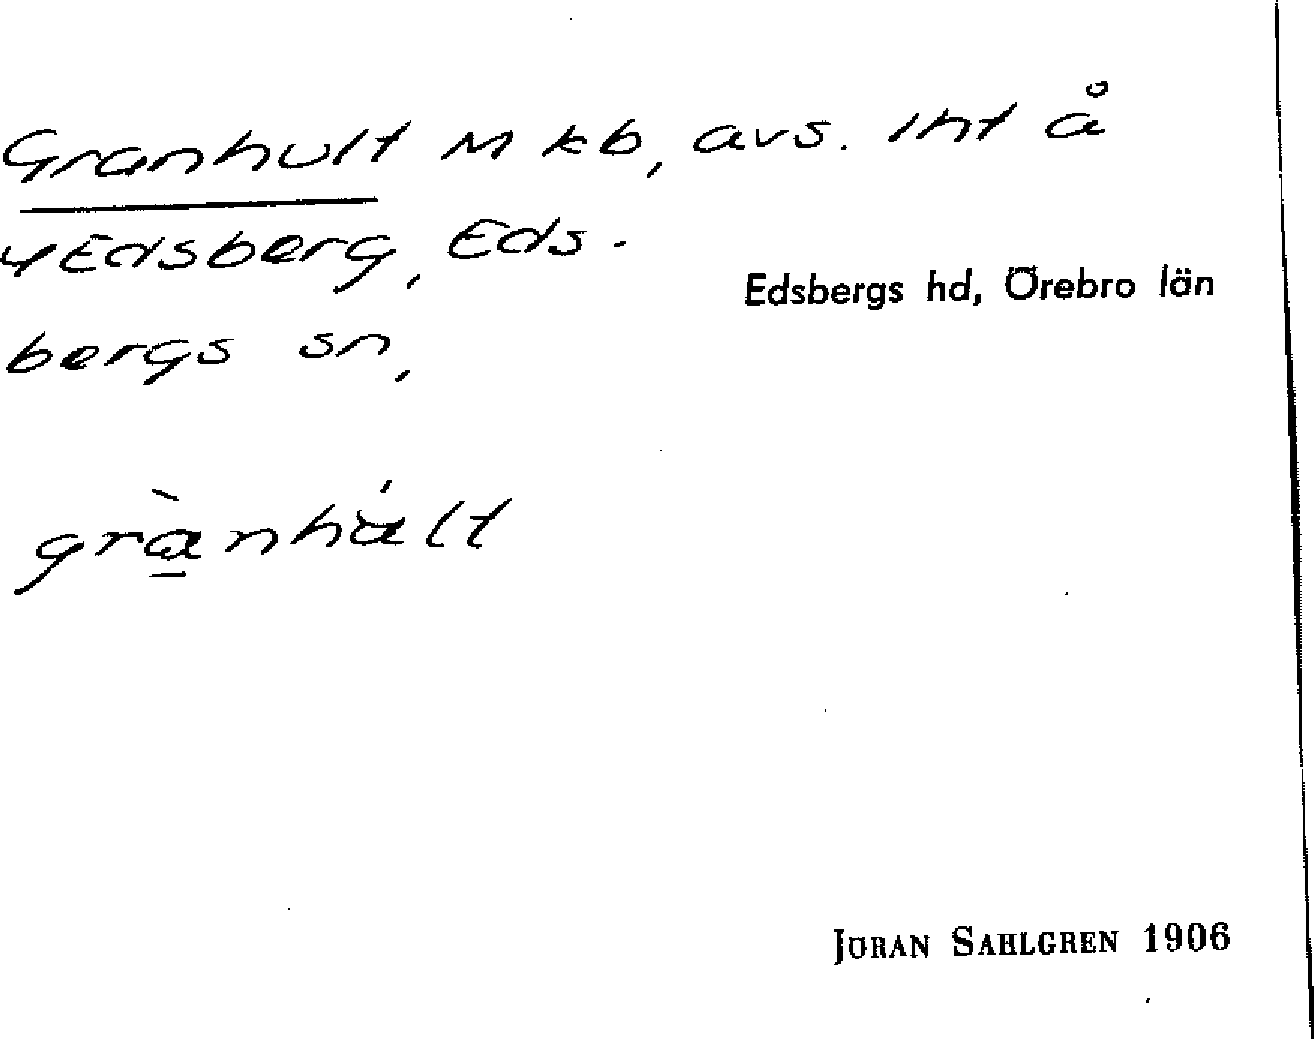 Granhult M kb, avs. Int å
Edsberg, Eds-
bergs sn,
Edsbergs hd, Örebro län
JÖRAN SAHLGREN 1906